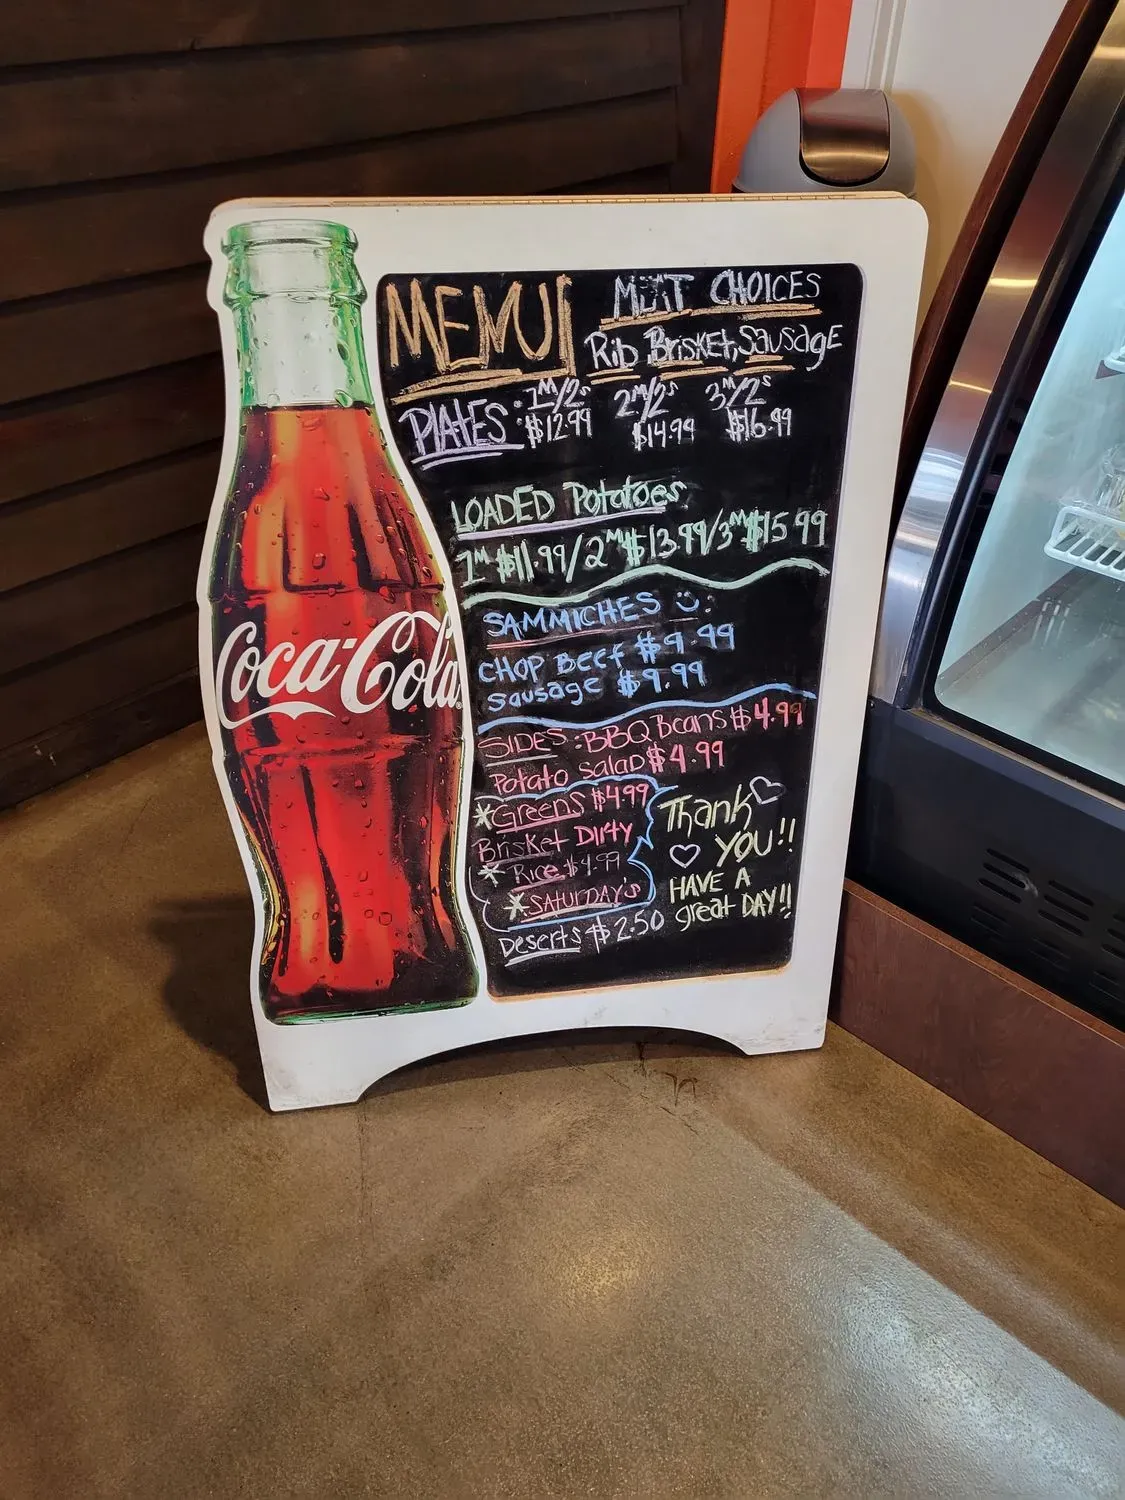 Coca-Cola
MENU
MEAT CHOICES
Rib Brisket, Sausage
PLATES: 1M/2s 2M/2s 3M/2s
$12.99 $14.99 $16.99
LOADED Potatoes
1M $11.99/2M $13.99/3M $15.99
SAMMICHES
CHOP Beef $9.99
Sausage $9.99
SIDES: BBQ Beans $4.99
Potato Salad $4.99
*Greens $4.99
Brisket Dirty
* Rice $4.99
*SATURDAY's
Deserts $2.50
Thank
YOU!!
HAVE A
great DAY!!